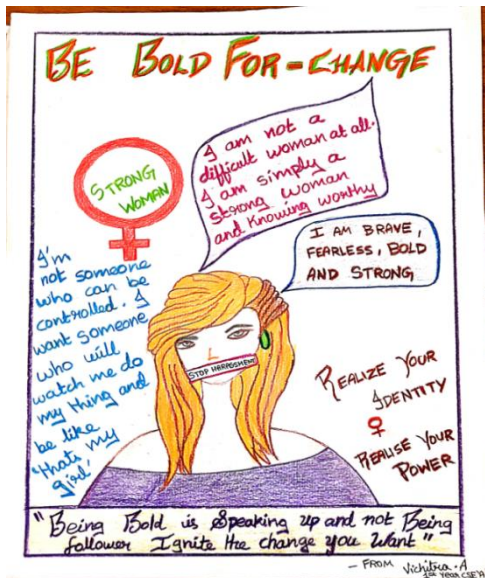 BE BOLD FOR - CHANGE
STRONG
WOMAN
I am not a
difficult woman at all.
I am simply a
strong woman
and Knowing worthy
I AM BRAVE,
FEARLESS, BOLD
AND STRONG
I'm
not someone
who can be
controlled. I
want someone
who will
watch me do
my thing and
be like
'thats my
girl'
STOP HARASSMENT
REALIZE YOUR
IDENTITY
REALISE YOUR
POWER
"Being Bold is Speaking up and not Being
follower Ignite the change you Want"
- FROM Vichitra.A
1st YEAR CSE'A